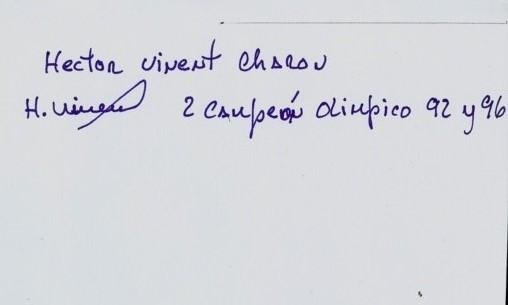 Hector Vinent Charon
H. Vinent 2 campeón Olimpico 92 y 96